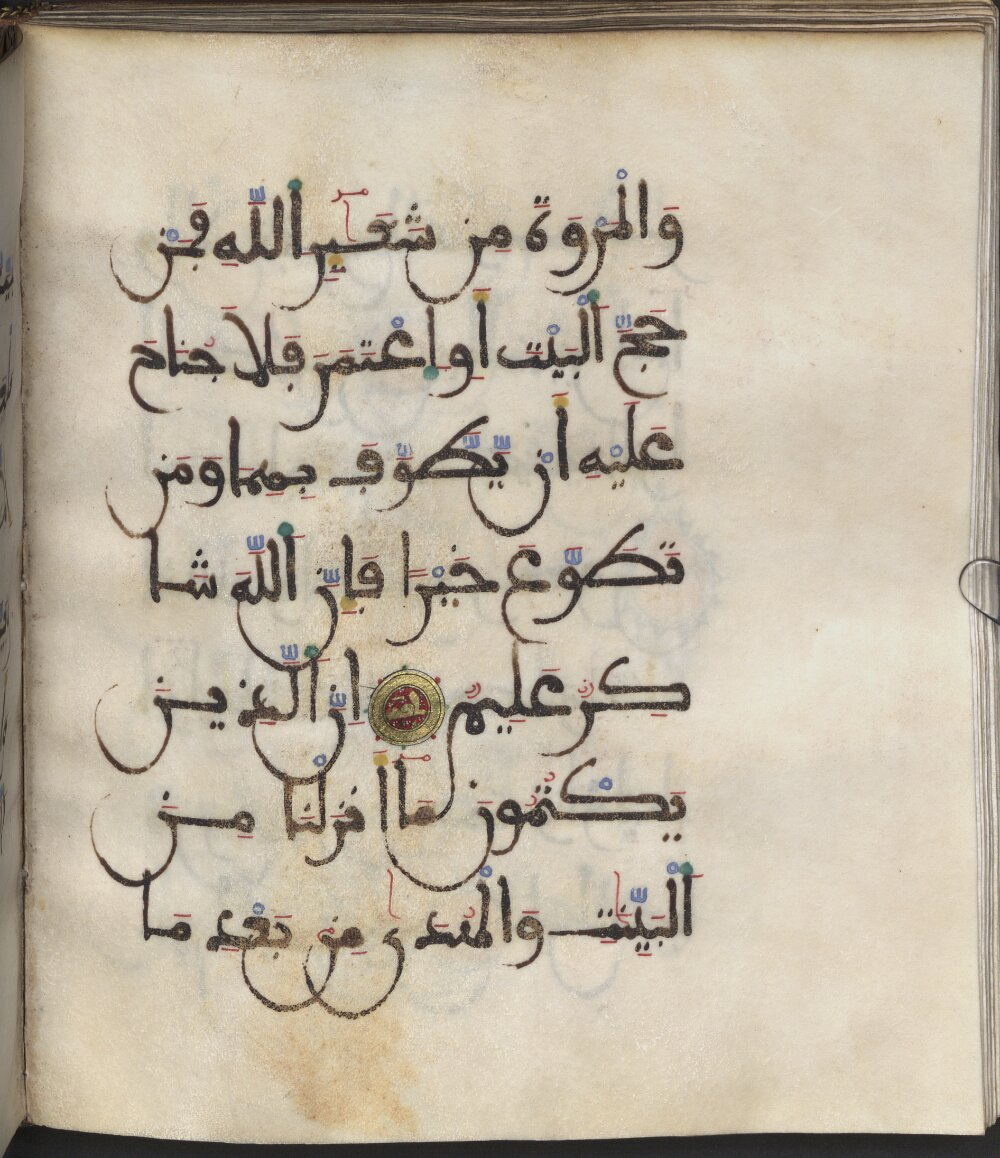 وَالْمَرْوَةَ مِن شَعَٰٓئِرِ اللَّهِ فَمَنْ
حَجَّ الْبَيْتَ أَوِ اعْتَمَرَ فَلَا جُنَاحَ
عَلَيْهِ أَن يَّطَّوَّفَ بِهِمَا وَمَن
تَطَوَّعَ خَيْرًا فَإِنَّ اللَّهَ شَا
كِرٌ عَلِيمٌ إِنَّ الَّذِينَ
يَكْتُمُونَ مَآ أَنزَلْنَا مِنَ
الْبَيِّنَٰتِ وَالْهُدَىٰ مِن بَعْدِ مَا